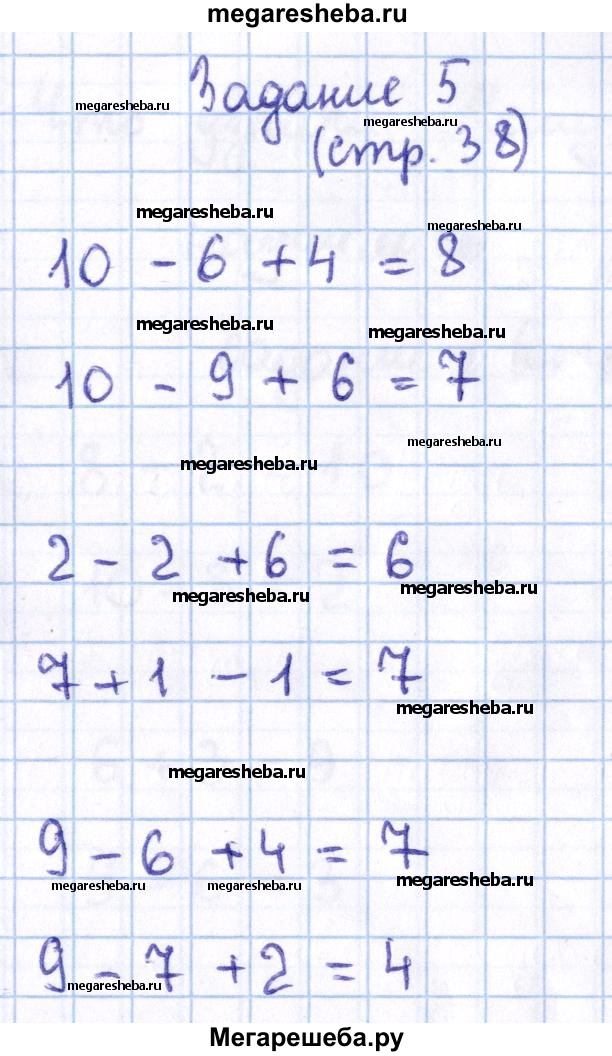 megaresheba.ru
Задание 5
megaresheba.ru
megaresheba.ru
(стр. 38)
megaresheba.ru
megaresheba.ru
10 - 6 + 4 = 8
megaresheba.ru
megaresheba.ru
10 - 9 + 6 = 7
megaresheba.ru
megaresheba.ru
2 - 2 + 6 = 6
megaresheba.ru
megaresheba.ru
7 + 1 - 1 = 7
megaresheba.ru
megaresheba.ru
9 - 6 + 4 = 7
megaresheba.ru
megaresheba.ru
megaresheba.ru
9 - 7 + 2 = 4
megaresheba.ru
Мегарешеба.ру